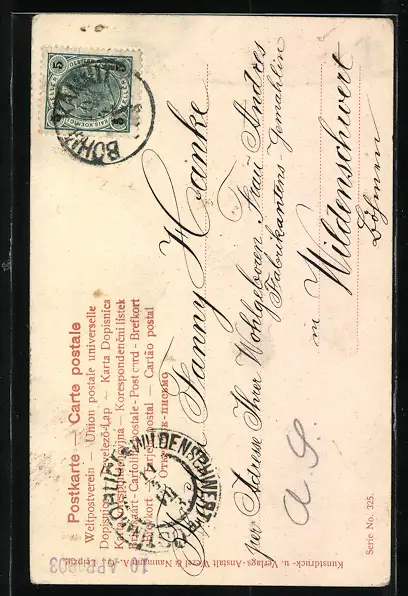 Postkarte — Carte postale
Weltpostverein — Union postale universelle
Dopisnice — Levelező-Lap — Karta Dopisnica
Korespondenční lístek
Cartolina postale - Post card - Brefkort
Brevkort — Tarjeta postal — Cartão postal
ОТКРЫТОЕ ПИСЬМО
5
5
BÖHM.
WILDENSCHWERT
Fanny Hainke
per Adresse Ihrer Wohlgeboren Frau Andres
Fabrikantens-Gemahlin
in Wildenschwert
Böhmen
10 APR 1903
Kunstdruck- u. Verlags-Anstalt Wezel & Naumann A.-G. Leipzig
Serie No. 325.